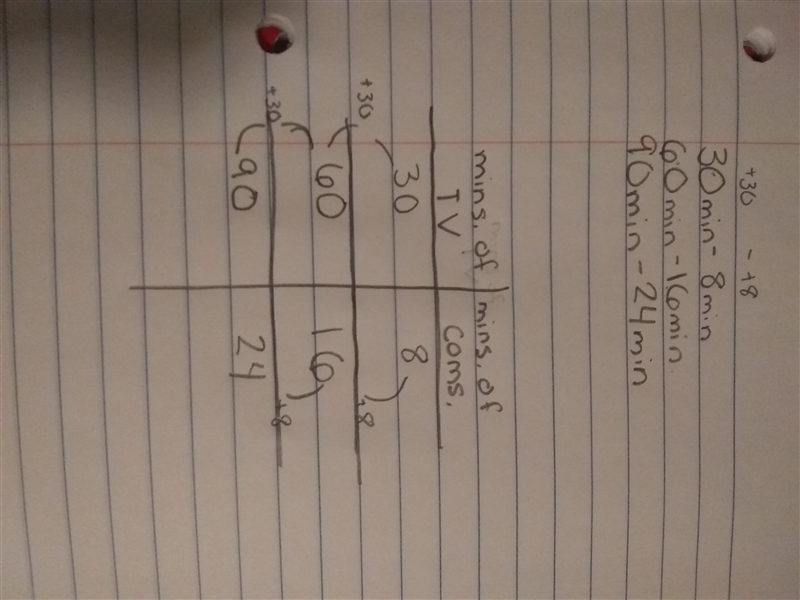 +30 - +8
30min - 8min
60min - 16min
90min - 24min
mins. of mins. of
TV coms.
30 8
+30 +8
60 16
+30 +8
90 24